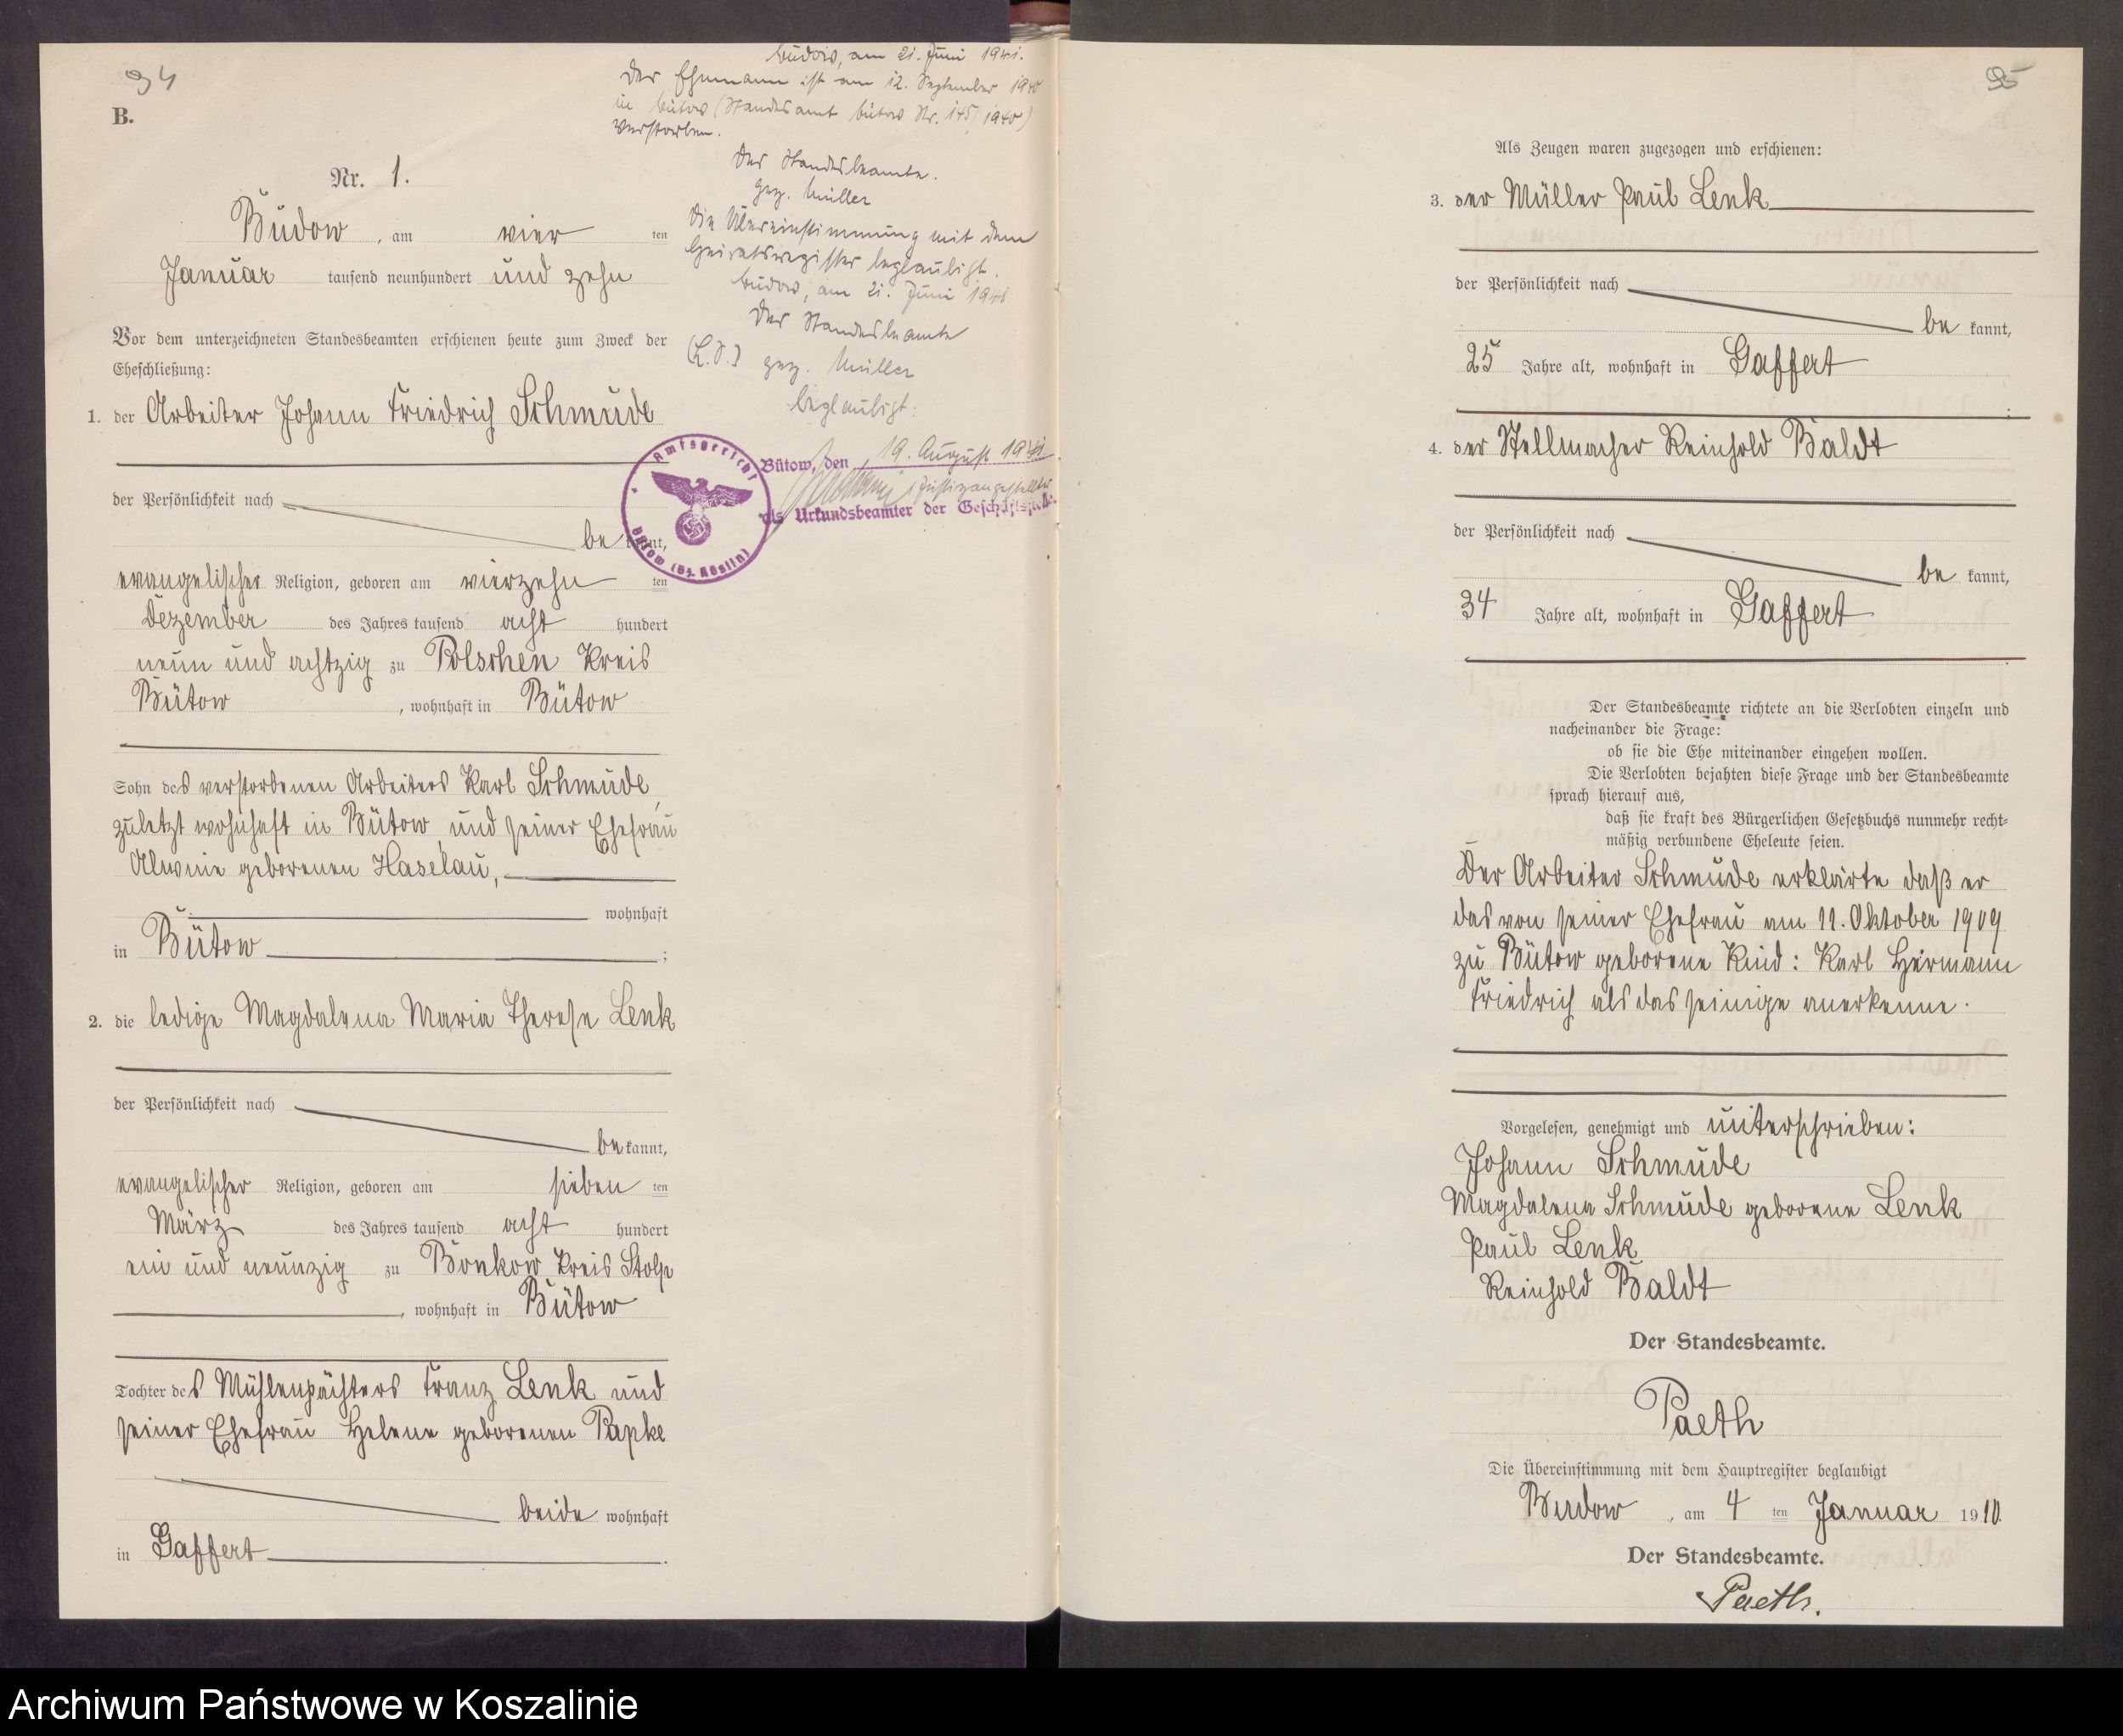 94
B.
Nr. 1.
Budow, am vier ten
Januar tausend neunhundert und zehn
Vor dem unterzeichneten Standesbeamten erschienen heute zum Zweck der
Eheschließung:
1. der Arbeiter Johann Friedrich Schmude
der Persönlichkeit nach
be kannt,
evangelischer Religion, geboren am vierzehn ten
Dezember des Jahres tausend acht hundert
neun und achtzig zu Polschen Kreis
Bütow, wohnhaft in Bütow
Sohn des verstorbenen Arbeiters Karl Schmude,
zuletzt wohnhaft in Bütow und seiner Ehefrau
Alwine geborenen Haselau,
wohnhaft
in Bütow ;
2. die ledige Magdalena Maria Therese Lenk
der Persönlichkeit nach
be kannt,
evangelischer Religion, geboren am sieben ten
März des Jahres tausend acht hundert
ein und neunzig zu Bonkow Kreis Stolp
, wohnhaft in Bütow
Tochter des Mühlenpächters Franz Lenk und
seiner Ehefrau Helene geborenen Papke
beide wohnhaft
in Gaffert .
Budow, am 21. Juni 1941.
Der Ehemann ist am 12. September 1940
in Bütow (Standesamt Bütow Nr. 145/1940)
verstorben.
Der Standesbeamte.
gez. Müller
Die Übereinstimmung mit dem
Heiratsregister beglaubigt.
Budow, am 21. Juni 1941
Der Standesbeamte
(L.S.) gez. Müller
beglaubigt:
Bütow, den 19. August 1941
Justizangestellter
als Urkundsbeamter der Geschäftsstelle.
Amtsgericht
Bütow (Bz. Köslin)
95
Als Zeugen waren zugezogen und erschienen:
3. der Müller Paul Lenk
der Persönlichkeit nach
be kannt,
25 Jahre alt, wohnhaft in Gaffert
;
4. der Stellmacher Reinhold Baldt
der Persönlichkeit nach
be kannt,
34 Jahre alt, wohnhaft in Gaffert
Der Standesbeamte richtete an die Verlobten einzeln und
nacheinander die Frage:
ob sie die Ehe miteinander eingehen wollen.
Die Verlobten bejahten diese Frage und der Standesbeamte
sprach hierauf aus,
daß sie kraft des Bürgerlichen Gesetzbuchs nunmehr recht-
mäßig verbundene Eheleute seien.
Der Arbeiter Schmude erklärte daß er
das von seiner Ehefrau am 11. Oktober 1909
zu Bütow geborene Kind: Karl Hermann
Friedrich als das seinige anerkenne.
Vorgelesen, genehmigt und unterschrieben:
Johann Schmude
Magdalena Schmude geborene Lenk
Paul Lenk
Reinhold Baldt
Der Standesbeamte.
Paeth
Die Übereinstimmung mit dem Hauptregister beglaubigt
Budow, am 4 ten Januar 1910.
Der Standesbeamte.
Paeth.
Archiwum Państwowe w Koszalinie